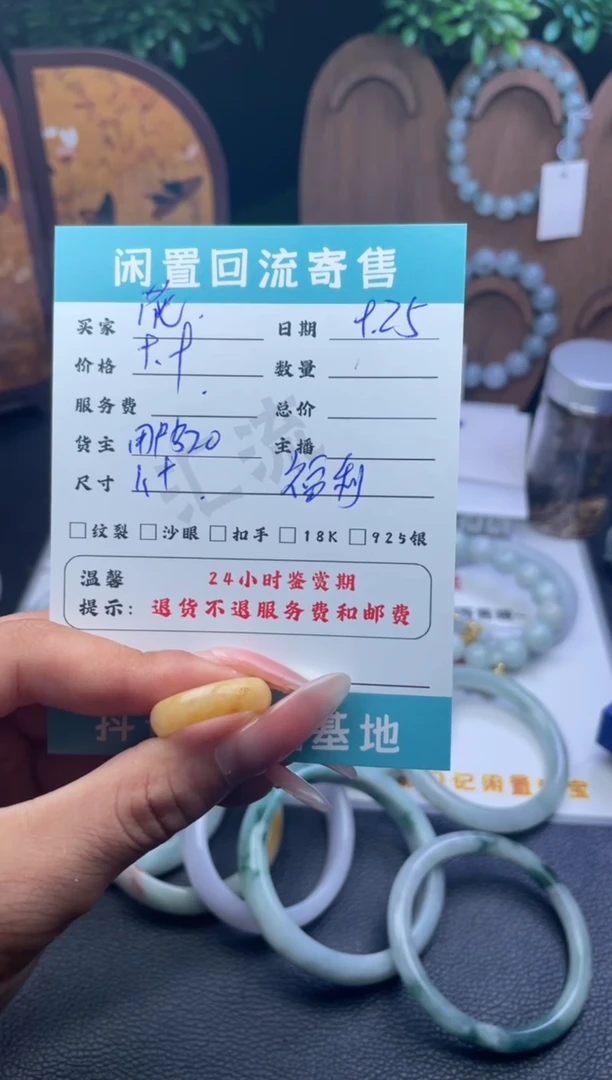 闲置回流寄售
买家 日期 9.25
价格 数量
服务费 总价
货主 用户520 主播
尺寸 福利
汇流
□纹裂 □沙眼 □扣手 □18K □925银
温馨 24小时鉴赏期
提示: 退货不退服务费和邮费
抖 基地
记闲置